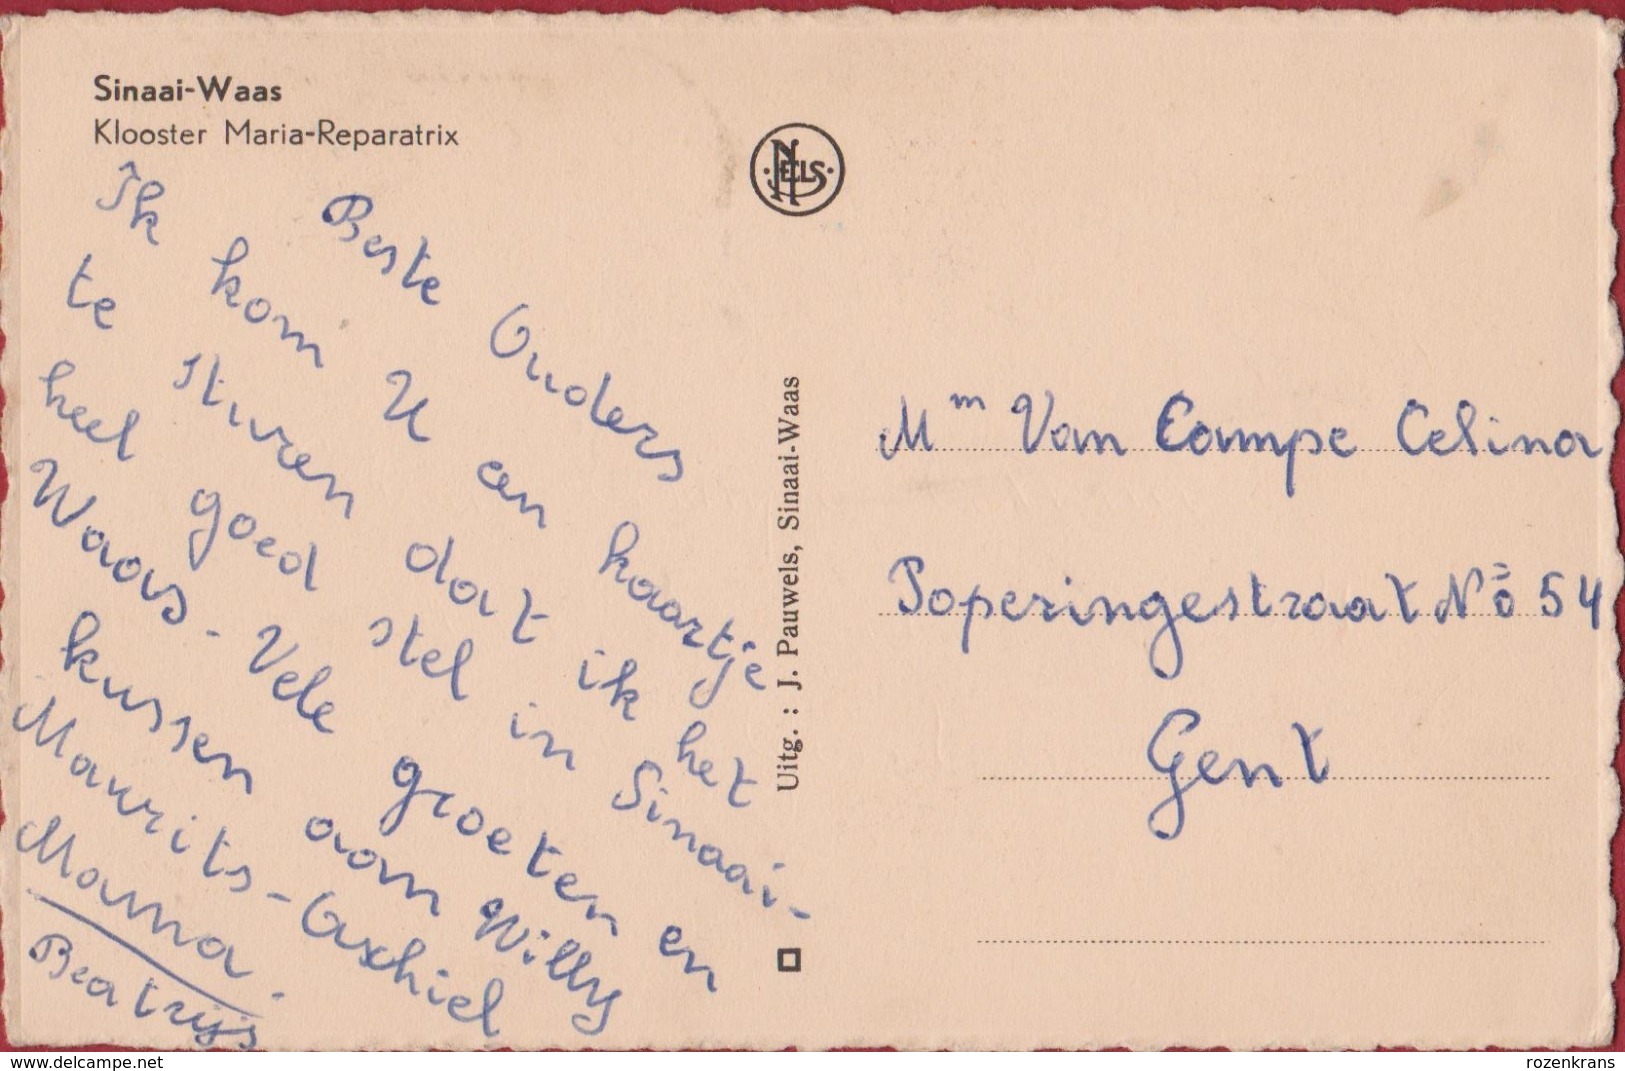 Sinaai-Waas
Klooster Maria-Reparatrix
Beste Ouders
Ik kom U een kaartje
te sturen dat ik het
heel goed stel in Sinaai-
Waas. Vele groeten en
kussen aan Willy
Maurits - Achiel
Mama.
Beatrijs
NELS
Uitg. : J. Pauwels, Sinaai-Waas
Mm Van Campe Celina
Poperingestraat No 54
Gent
www.delcampe.net
rozenkrans